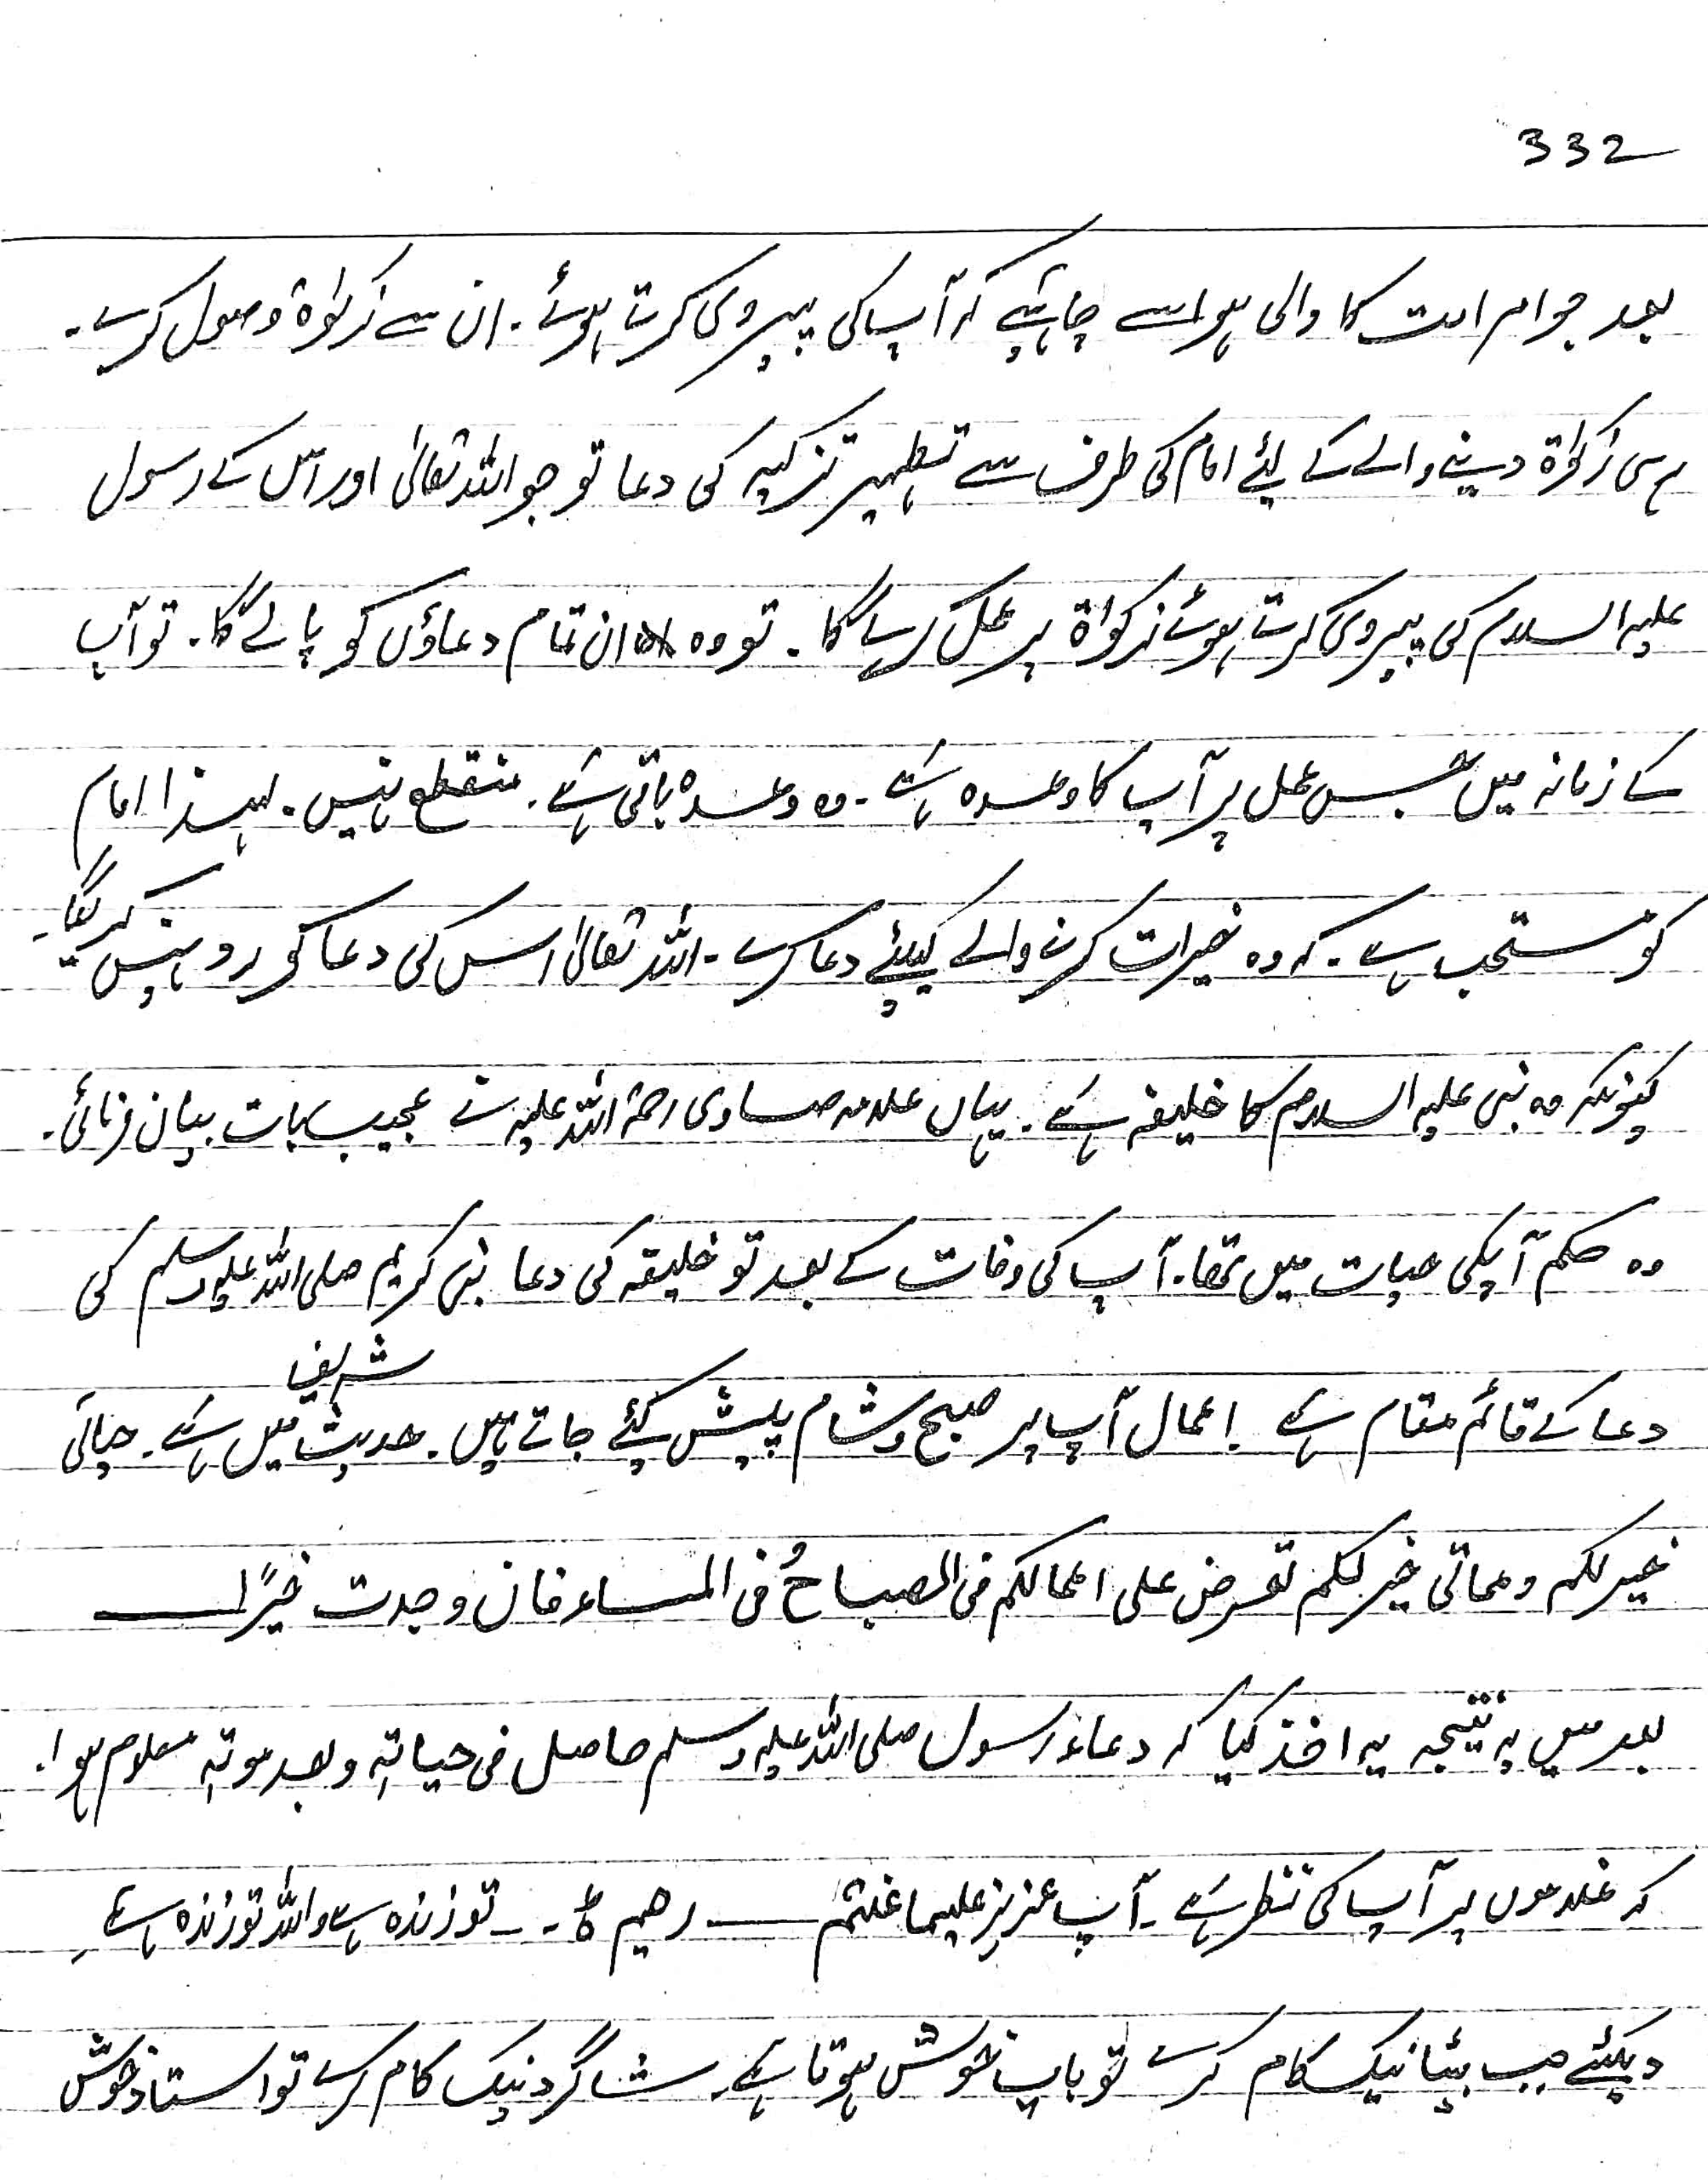 332
بعد جو امر امت کا والی ہو اسے چاہئیے کہ آپ کی پیروی کرتے ہوئے۔ ان سے زکوٰۃ وصول کرے۔
رہی زکوٰۃ دینے والے کے لئے امام کی طرف سے تطہیر تزکیہ کی دعا تو جو اللہ تعالیٰ اور اس کے رسول
علیہ السلام کی پیروی کرتے ہوئے زکوٰاۃ پر عمل کرے گا۔ تو وہ ان تمام دعاؤں کو پا لے گا۔ تو آپ
کے زمانہ میں جس عمل پر آپ کا وعدہ ہے۔ وہ وعدہ باقی ہے۔ منقطع نہیں۔ لہذا امام
کو مستحب ہے۔ کہ وہ خیرات کرنے والے کیلئے دعا کرے۔ اللہ تعالیٰ اس کی دعا کو رد نہیں کریگا۔
کیونکہ وہ نبی علیہ السلام کا خلیفہ ہے۔ یہاں علامہ صاوی رحمۃ اللہ علیہ نے عجیب بات بیان فرمائی۔
وہ حکم آپکی حیات میں تھا۔ آپ کی وفات کے بعد تو خلیفہ کی دعا نبی کریم صلی اللہ علیہ وسلم کی
دعا کے قائم مقام ہے۔ اعمال آپ پر صبح و شام پیش کئے جاتے ہیں۔ حدیث شریف میں ہے۔ حیاتی
خیر لکم و مماتی خیر لکم تعرض علی اعمالکم فی الصباح و فی المساء فان وجدت خیرًا ــــــ
بعد میں یہ نتیجہ یہ اخذ کیا کہ دعاء رسول صلی اللہ علیہ وسلم حاصل فی حیاتہ و بعد موتہ معلوم ہوا۔
کہ غلاموں پر آپ کی نظر ہے۔ آپ عزیز علیہ ما عنتم ـــــ رحیم ط۔ ۔ تو زندہ ہے واللہ تو زندہ ہے۔
دیکئے جب بیٹا نیک کام کرے تو باپ خوش ہوتا ہے۔ شاگرد نیک کام کرے تو استاد خوش